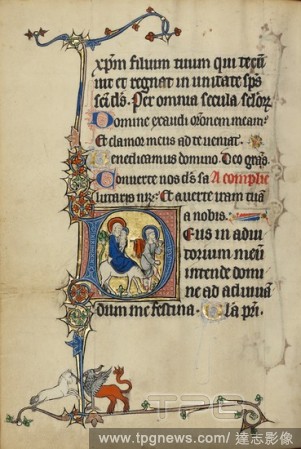 xpm filium tuum qui tecum
uiuit et regnat in unitate sps
sci ds. Per omnia secula sclor.
Domine exaudi oronem meam.
Et clamor meus ad te ueniat.
Benedicamus domino. Deo gras.
Conuerte nos ds sa A complie
lutaris nr. Et auerte iram tua
a nobis.
Deus in adiu
torium meu
intende domi
ne ad adiuuan
dum me festina. Gla pri.
TPG
www.tpgnews.com/ 達志影像